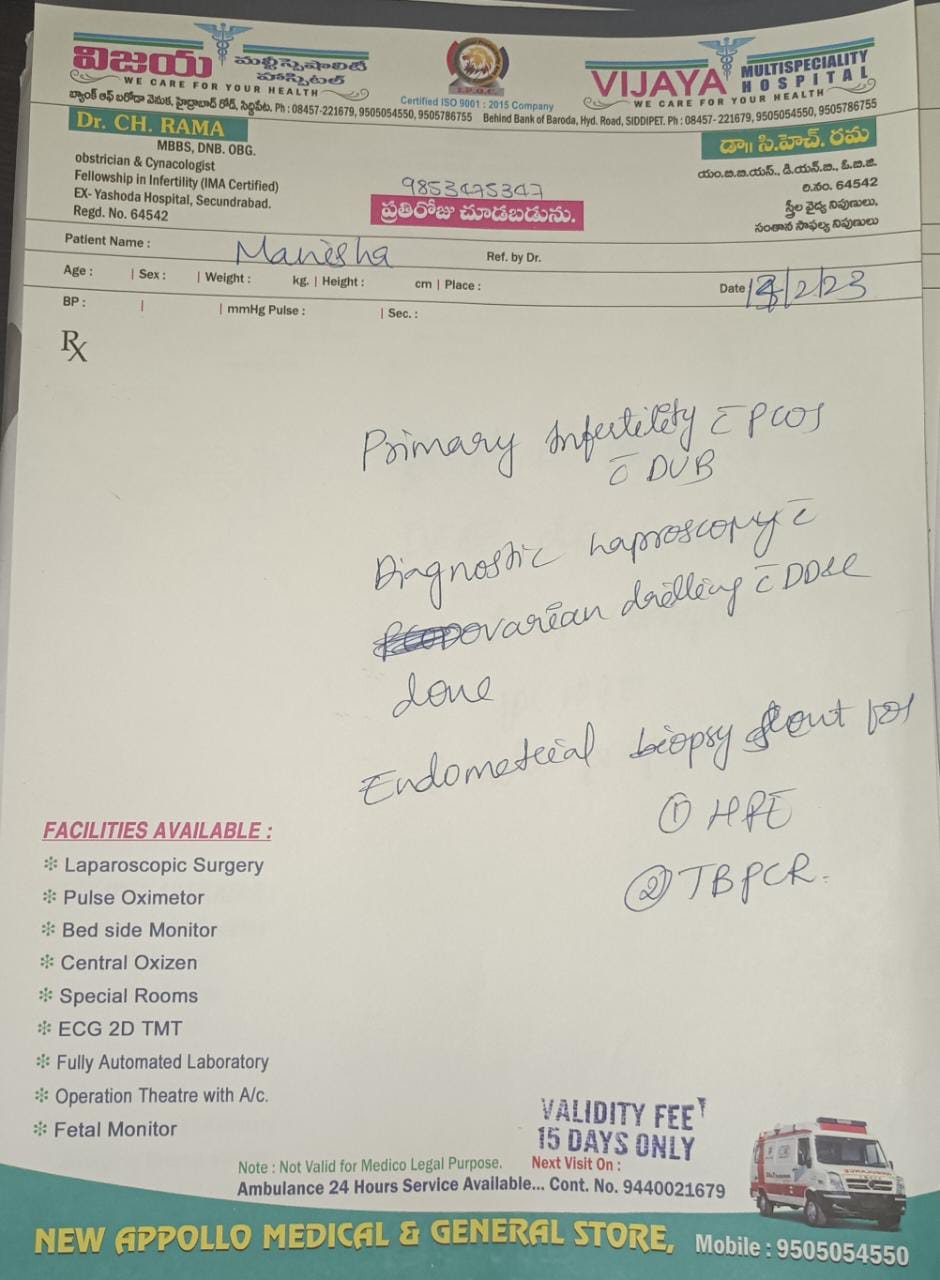 విజయ మల్టీస్పెషాలిటీ హాస్పిటల్
WE CARE FOR YOUR HEALTH
బ్యాంక్ ఆఫ్ బరోడా వెనుక, హైద్రాబాద్ రోడ్, సిద్దిపేట. Ph : 08457-221679, 9505054550, 9505786755
I.P.Q.C.
Certified ISO 9001 : 2015 Company
VIJAYA MULTISPECIALITY HOSPITAL
WE CARE FOR YOUR HEALTH
Behind Bank of Baroda, Hyd. Road, SIDDIPET. Ph : 08457- 221679, 9505054550, 9505786755
Dr. CH. RAMA
MBBS, DNB. OBG.
obstrician & Cynacologist
Fellowship in Infertility (IMA Certified)
EX- Yashoda Hospital, Secundrabad.
Regd. No. 64542
9853475347
ప్రతిరోజు చూడబడును.
డా॥ సి.హెచ్. రమ
యం.బి.బి.యస్., డి.యన్.బి., ఓ.బి.జి.
రి.నం. 64542
స్త్రీల వైద్య నిపుణులు,
సంతాన సాఫల్య నిపుణులు
Patient Name : Manisha Ref. by Dr.
Age : | Sex : | Weight : kg. | Height : cm | Place : Date
BP : | | mmHg Pulse : | Sec. :
Rx
Primary Infertility c̄ PCOS
c̄ DUB
Diagnostic Laproscopy c̄
ovarian drilling c̄ DD&C
done
Endometrial biopsy sent for
① HPE
② TBPCR.
FACILITIES AVAILABLE :
✻ Laparoscopic Surgery
✻ Pulse Oximetor
✻ Bed side Monitor
✻ Central Oxizen
✻ Special Rooms
✻ ECG 2D TMT
✻ Fully Automated Laboratory
✻ Operation Theatre with A/c.
✻ Fetal Monitor
VALIDITY FEE
15 DAYS ONLY
Note : Not Valid for Medico Legal Purpose. Next Visit On :
Ambulance 24 Hours Service Available... Cont. No. 9440021679
NEW APPOLLO MEDICAL & GENERAL STORE, Mobile : 9505054550